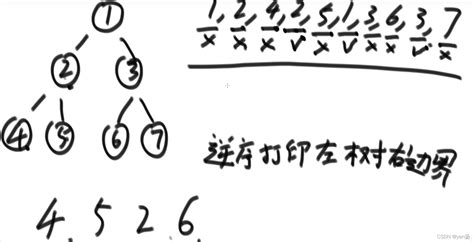 1, 2, 4, 2, 5, 1, 3, 6, 3, 7
x x x √ x √ x x √ x
1
2 3
4 5 6 7
逆序打印左树右边界
4. 5 2 6.
CSDN